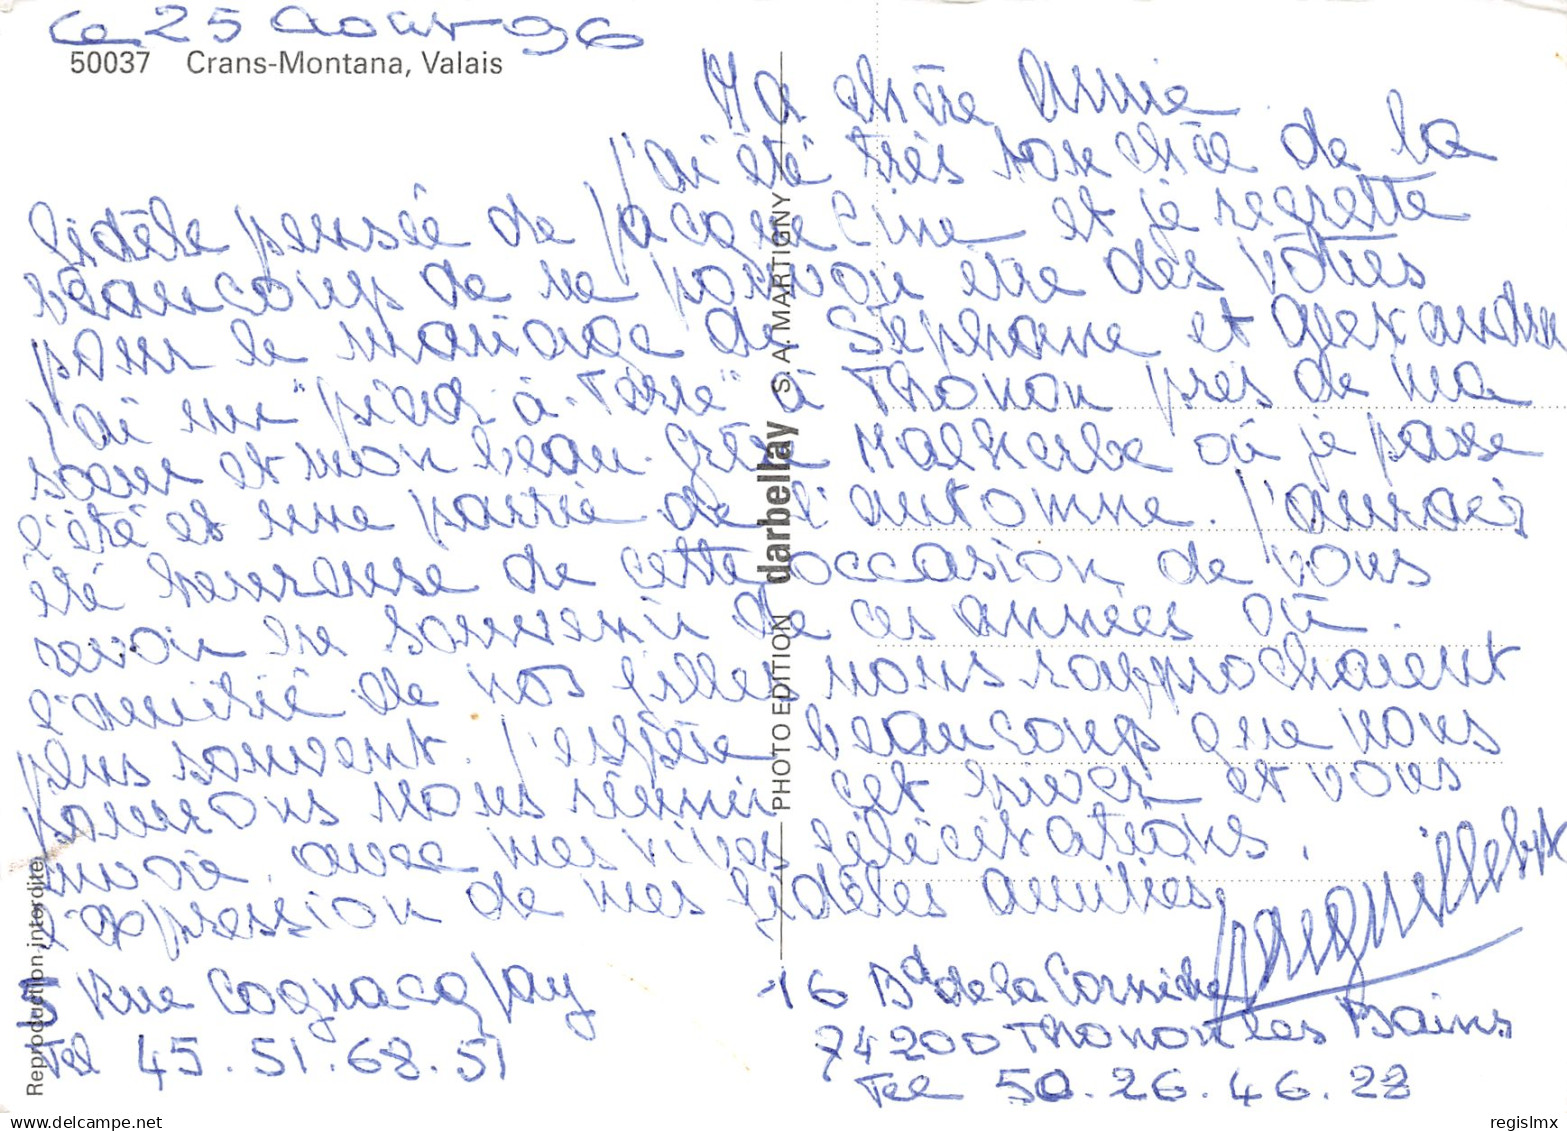 Ce 25 Août 96
50037 Crans-Montana, Valais
Ma chère Annie
J'ai été très touchée de la
fidèle pensée de Jacqueline et je regrette
beaucoup de ne pouvoir être des vôtres
pour le mariage de Stéphane et Alexandra
J'ai un "pied-à-terre" à Thonon près de ma
soeur et mon beau-frère Malherbe où je passe
l'été et une partie de l'automne. J'aurais
été heureuse de cette occasion de vous
revoir en souvenir de ces années où
l'amitié de nos filles nous rapprochaient
plus souvent. J'espère beaucoup que nous
pourrons nous réunir cet hiver et vous
envoie, avec mes vives félicitations,
l'expression de mes fidèles amitiés
5 Rue Cognacq Jay
Tel 45.51.68.51
16 Bd de la Corniche
74200 Thonon les Bains
Tel 50.26.46.28
PHOTO EDITION darbellay S. A. MARTIGNY
Reproduction interdite
regislmx